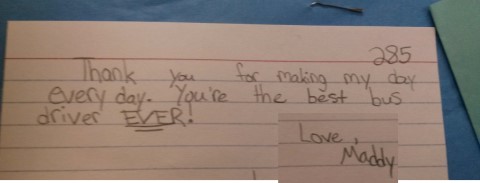 285
Thank you for making my day
every day. You're the best bus
driver EVER!
Love,
Maddy